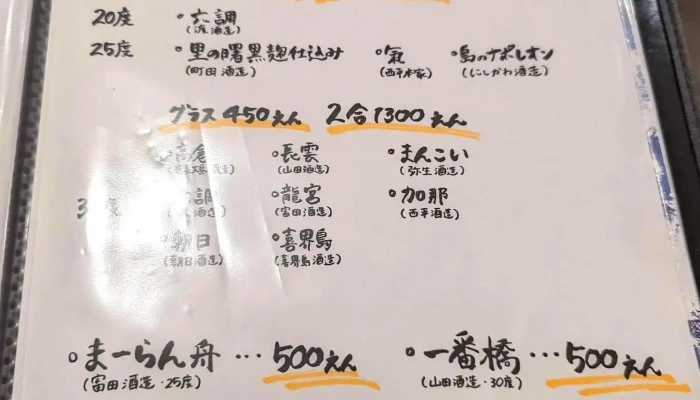 20度 ・六調
(渡酒造)
25度 ・里の曙黒麹仕込み ・氣 ・島のナポレオン
(町田酒造) (西平本家) (にしかわ酒造)
グラス450えん 2合1300えん
高倉 ・長雲 ・まんこい
(山田酒造) (弥生酒造)
調 ・龍宮 ・加那
(富田酒造) (西平酒造)
朝日 ・喜界島
(朝日酒造) (喜界島酒造)
・まーらん舟…500えん ・一番橋…500えん
(富田酒造・25度) (山田酒造・30度)